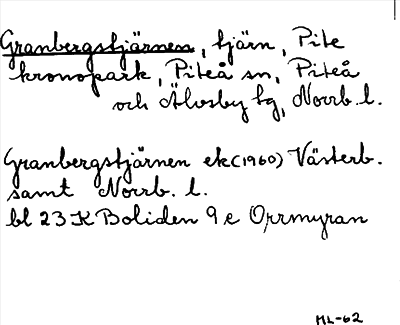 Granbergstjärnen, tjärn, Pite
kronopark, Piteå sn, Piteå
och Älvsby tg, Norrb. l.
Granbergstjärnen ek (1960) Västerb.
samt Norrb. l.
bl 23 K Boliden 9 e Orrmyran
ML-62